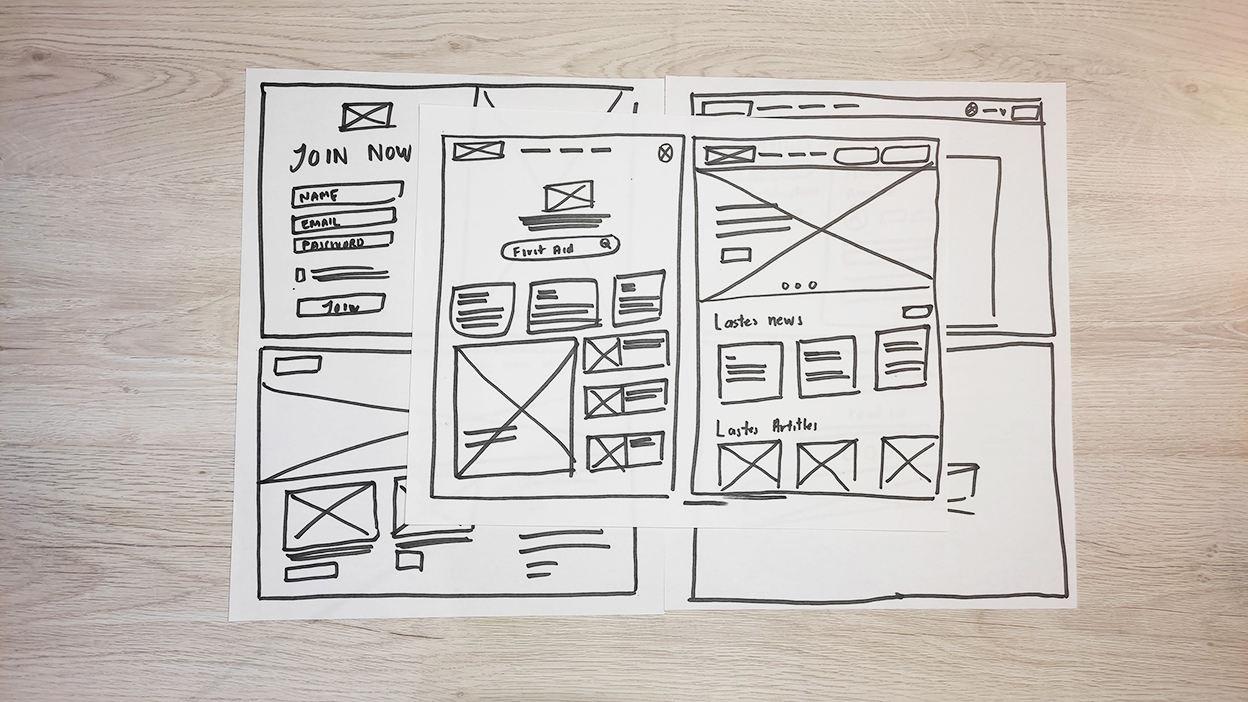 JOIN NOW
NAME
EMAIL
PASSWORD
JOIN
First Aid
Lastes news
Lastes Artitles